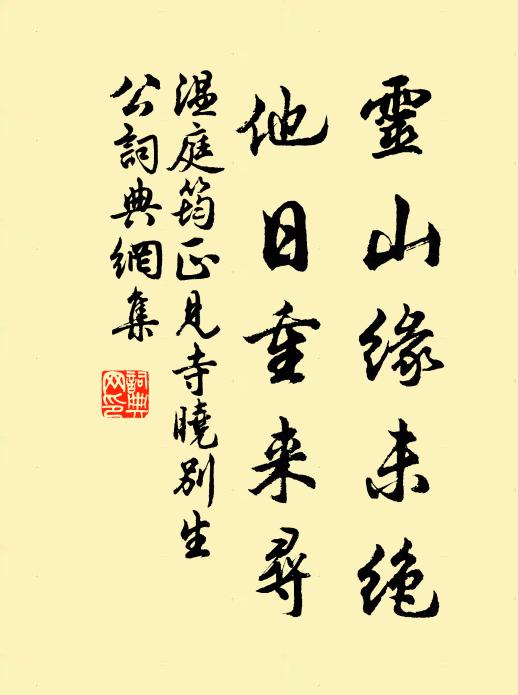 靈山緣未絕
他日重来尋
溫庭筠正見寺曉別生
公詞典網集
詞典
网印